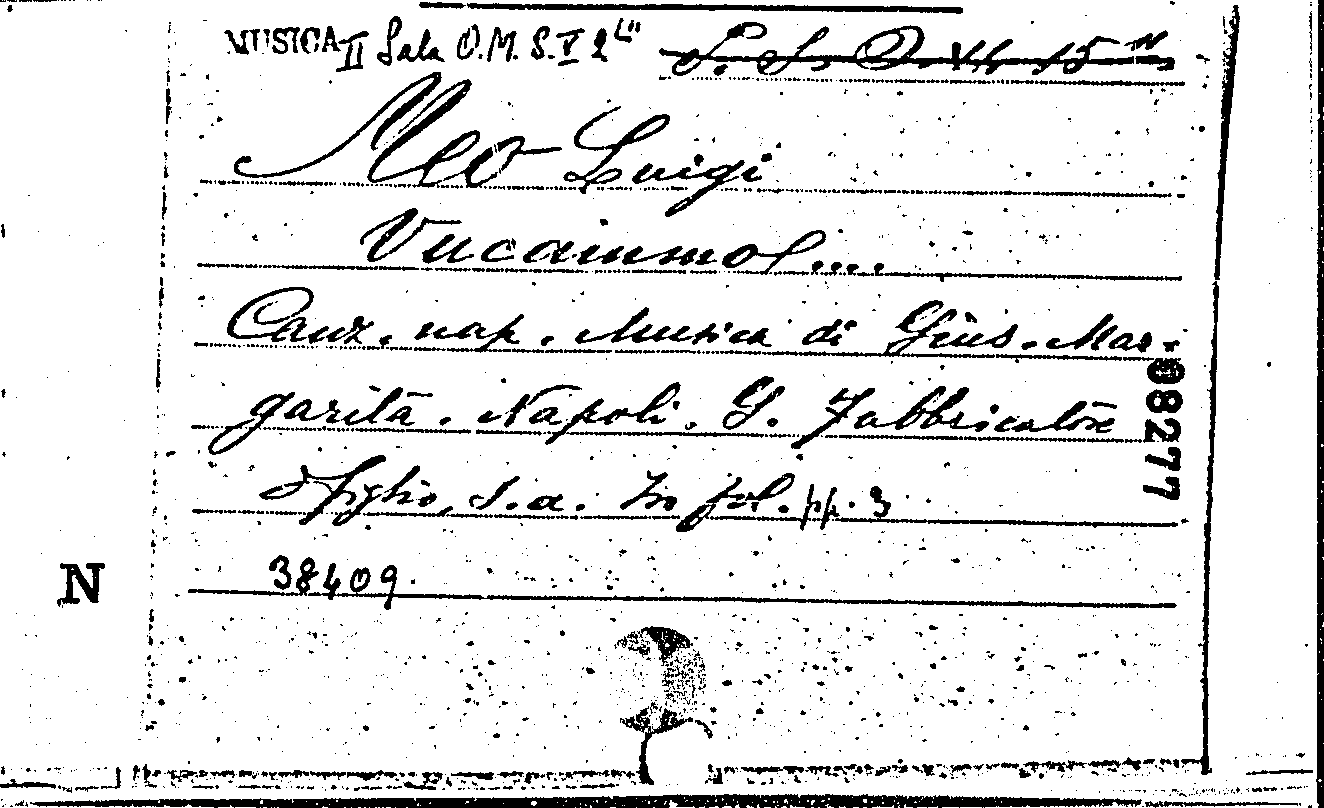 MUSICA II Sala O.M. S.V 2
Meo Luigi
Vucammol....
Canz. nap. Musica di Gius. Mar-
garita. Napoli. G. Fabbricatore
& figlio, s.a. In fol. pp. 3
38409.
N
08277